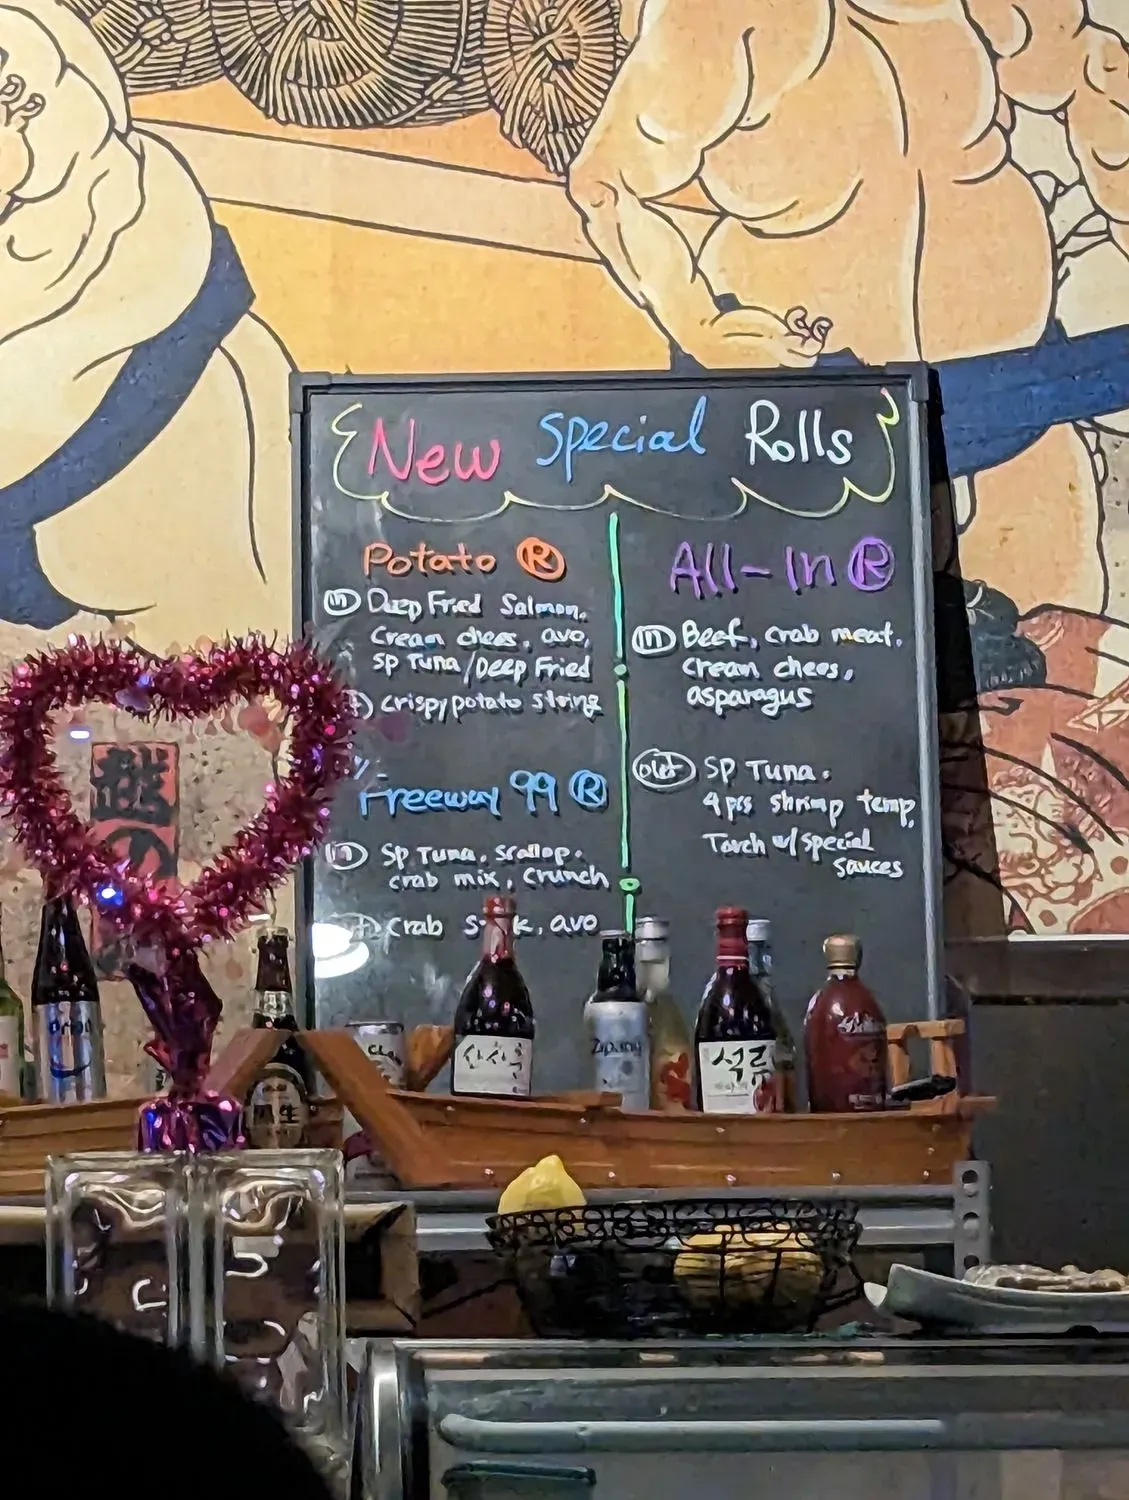 New Special Rolls
Potato Ⓡ
in Deep Fried Salmon,
Cream chees, avo,
SP Tuna/Deep Fried
crispy potato string
Freeway 99 Ⓡ
in SP Tuna, Scallop,
crab mix, Crunch
Crab avo
All-In Ⓡ
in Beef, crab meat,
cream chees,
asparagus
out SP Tuna,
4 pcs shrimp temp,
Torch w/ special
sauces
Zipang
석류